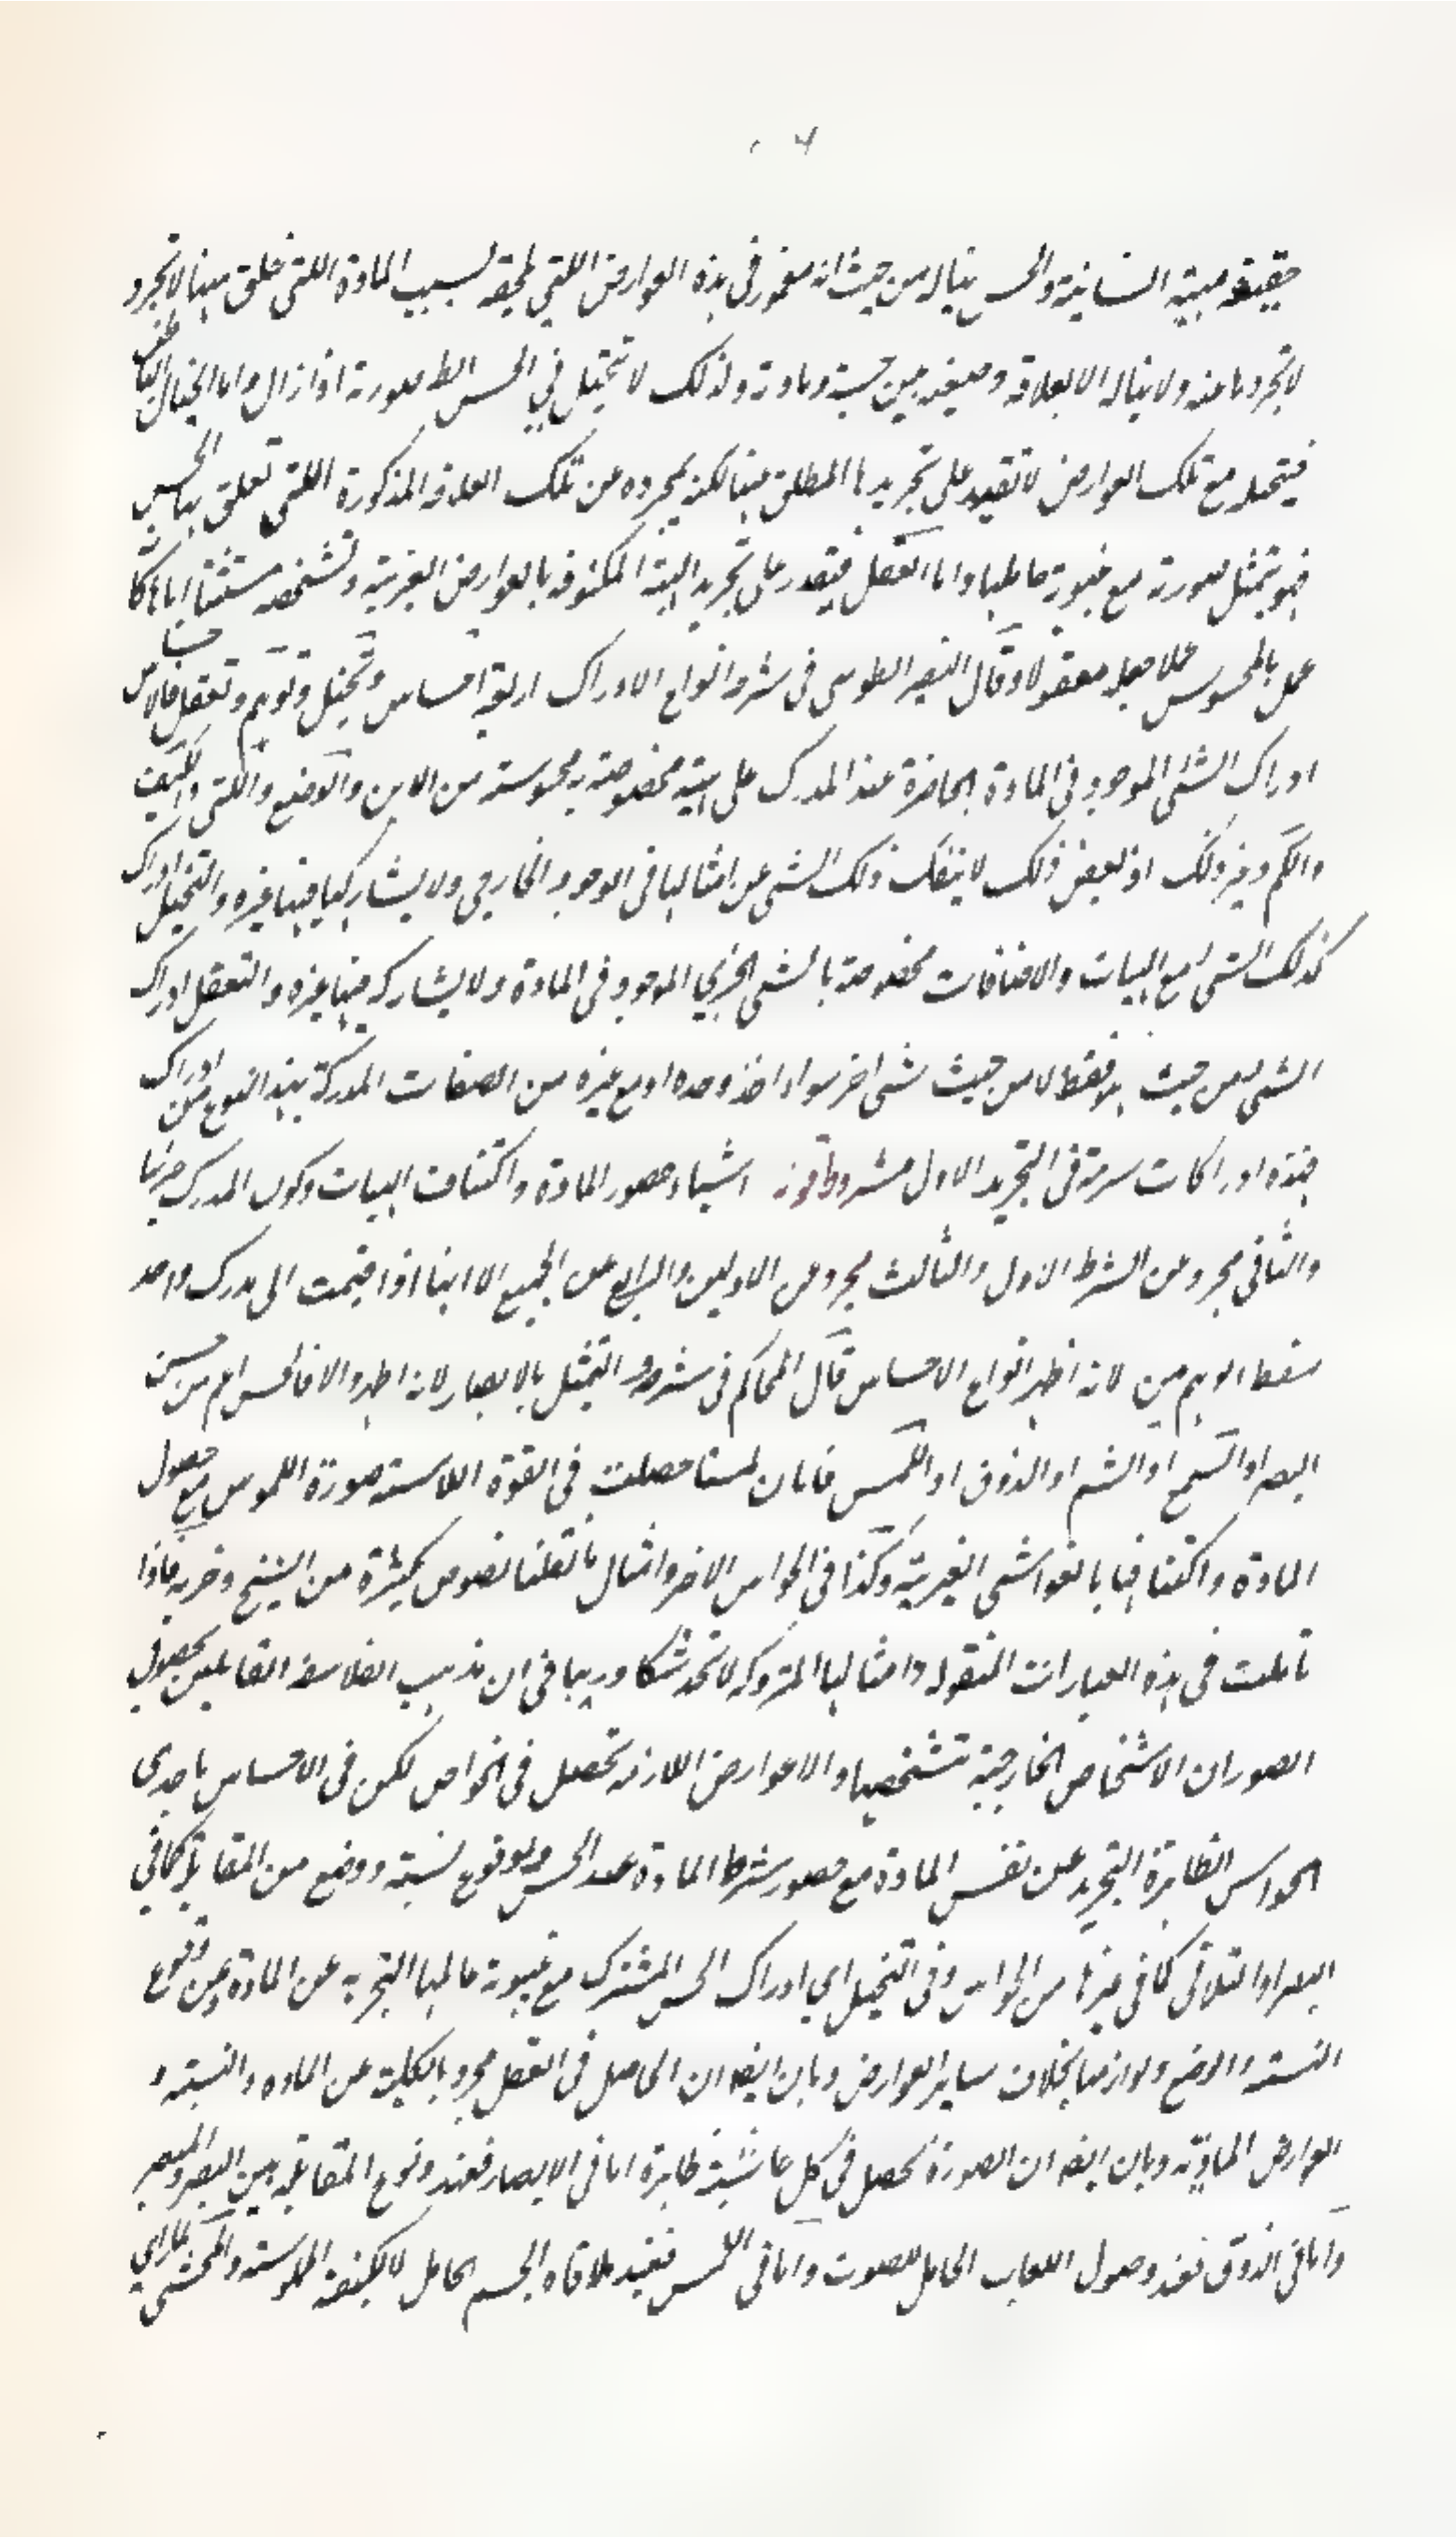 حقيقة مهية انسانية والحس يناله من حيث انه مغمور في هذه العوارض اللتي تلحقه بسبب المادة اللتي خلق منها لا تجرد
لا تجردها عنه ولا يناله الا بعلاقة وضعية بين حسه ومادته ولذلك لا تتمثل في الحس الظ صورته اذا زال واما الخيال الباطن
فيتخيله مع تلك العوارض لا تقيد على تجريدها المطلق عنها لكنه يجرده عن تلك العلاقة المذكورة اللتي تعلق بها الحس
فهو تمثل صورته مع غيبوبة حاملها واما العقل فيقدر على تجريد المهية المكنوفة بالعوارض الغريبة المشخصة مستثبتا اياها كانه
عمل بالمحسوس عملا جعله معقولا وقال النصير الطوسي في شرحه انواع الادراك اربعة احساس وتخيل وتوهم وتعقل فالاحساس
ادراك الشئ الموجود في المادة الحاضرة عند المدرك على هيئة مخصوصة به محسوسة من الاين والوضع والمتى والكيف
والكم وغير ذلك اذ بعض ذلك لا ينفك ذلك الشئ عن امثالها في الوجود الخارجي ولا يشاركها فيها غيره والتخيل ادراك
كذلك الشئ مع الهيات والاضافات مخصوصة بالشئ الجزئي الموجود في المادة ولا يشاركه فيها غيره والتعقل ادراك
الشئ من حيث هو فقط لا من حيث شئ اخر سواء اخذ وحده او مع غيره من الصفات المدركة بهذا النوع من ادراك
فهذه ادراكات مترتبة في التجريد الاول مشروط بثلثة اشياء حضور المادة واكتناف الهيات وكون المدرك جزئيا
والثاني مجرد عن الشرط الاول والثالث مجرد عن الاولين والرابع عن الجميع الا انها اذا قيست الى مدرك واحد
سقط الوهم من لانه اظهر انواع الاحساس قال المحاكم في شرحه التمثل بالابصار لانه اظهر والا فالحس اعم من حس
البصر او السمع او الشم او الذوق او اللمس فانا ان لمسنا حصلت في القوة اللامسة صورة الملموس مع حصول
المادة واكتنافها بالغواشي الغريبة وكذا في الحواس الاخر وامثال ما نقلنا نصوص كثيرة من الشيخ وحزبه فاذا
تاملت في هذه العبارات المنقولة وامثالها المتروكة لا تجد شكا وريبا في ان مذهب الفلاسفة القايلين بحصول
الصور ان الاشخاص الخارجية بتشخصها والاعوارض اللازمة تحصل في الحواس لكن في الاحساس باحدى
الحواس الظاهرة التجريد عن نفس المادة مع حضور شرط المادة عند الحس ووقوع نسبة ووضع من المقابلة كما في
البصر او التلاقي كما في غيرها من الحواس وفي التخيل اي ادراك الحس المشترك مع غيبوبة حاملها التجريد عن المادة وعن وقوع
النسبة والوضع ولوازمها بخلاف ساير العوارض وبان ايضا ان الحاصل في العقل مجرد بالكلية عن المادة والنسبة و
العوارض المادية وبان ايضا ان الصورة تحصل في كل حاسة ظاهرة اما في الابصار فعند وقوع المقابلة بين البصر والمبصر
واما في الذوق فعند وصول اللعاب الحامل للصوت واما في اللمس فعند ملاقاة الجسم الحامل لالكيفية الملموسة